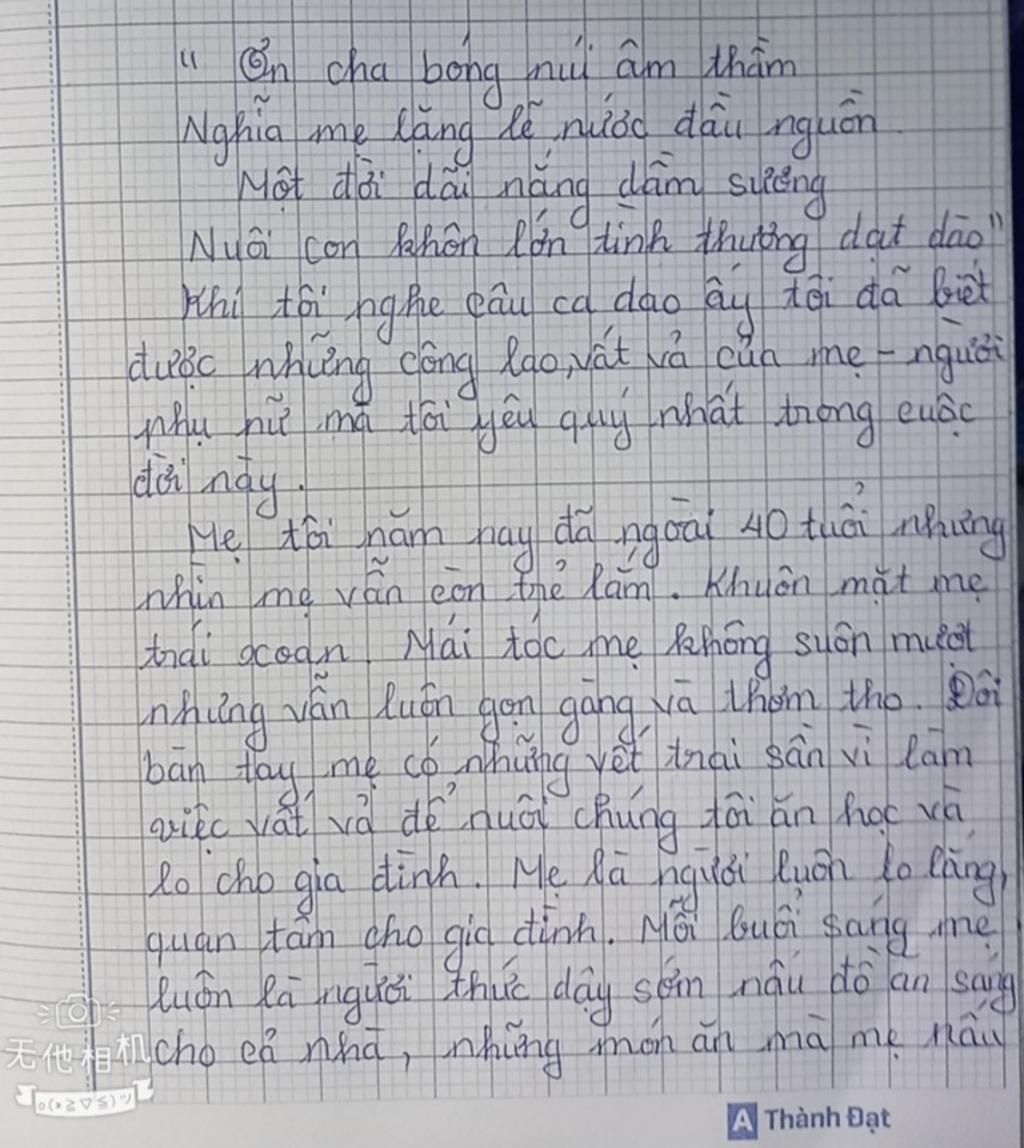 “ Ơn cha bóng núi âm thầm
Nghĩa mẹ lặng lẽ nước đầu nguồn
Một đời dãi nắng dầm sương
Nuôi con khôn lớn tình thương dạt dào”
Khi tôi nghe câu ca dao ấy tôi đã biết
được những công lao, vất vả của mẹ - người
phụ nữ mà tôi yêu quý nhất trong cuộc
đời này.
Mẹ tôi năm nay đã ngoài 40 tuổi nhưng
nhìn mẹ vẫn còn trẻ lắm. Khuôn mặt mẹ
trái xoan. Mái tóc mẹ không suôn mượt
nhưng vẫn luôn gọn gàng và thơm tho. Đôi
bàn tay mẹ có những vết trai sần vì làm
việc vất vả để nuôi chúng tôi ăn học và
lo cho gia đình. Mẹ là người luôn lo lắng,
quan tâm cho gia đình. Mỗi buổi sáng mẹ
luôn là người thức dậy sớm nấu đồ ăn sáng
cho cả nhà, những món ăn mà mẹ nấu
无他相机
o(*≧▽≦)ツ
A Thành Đạt